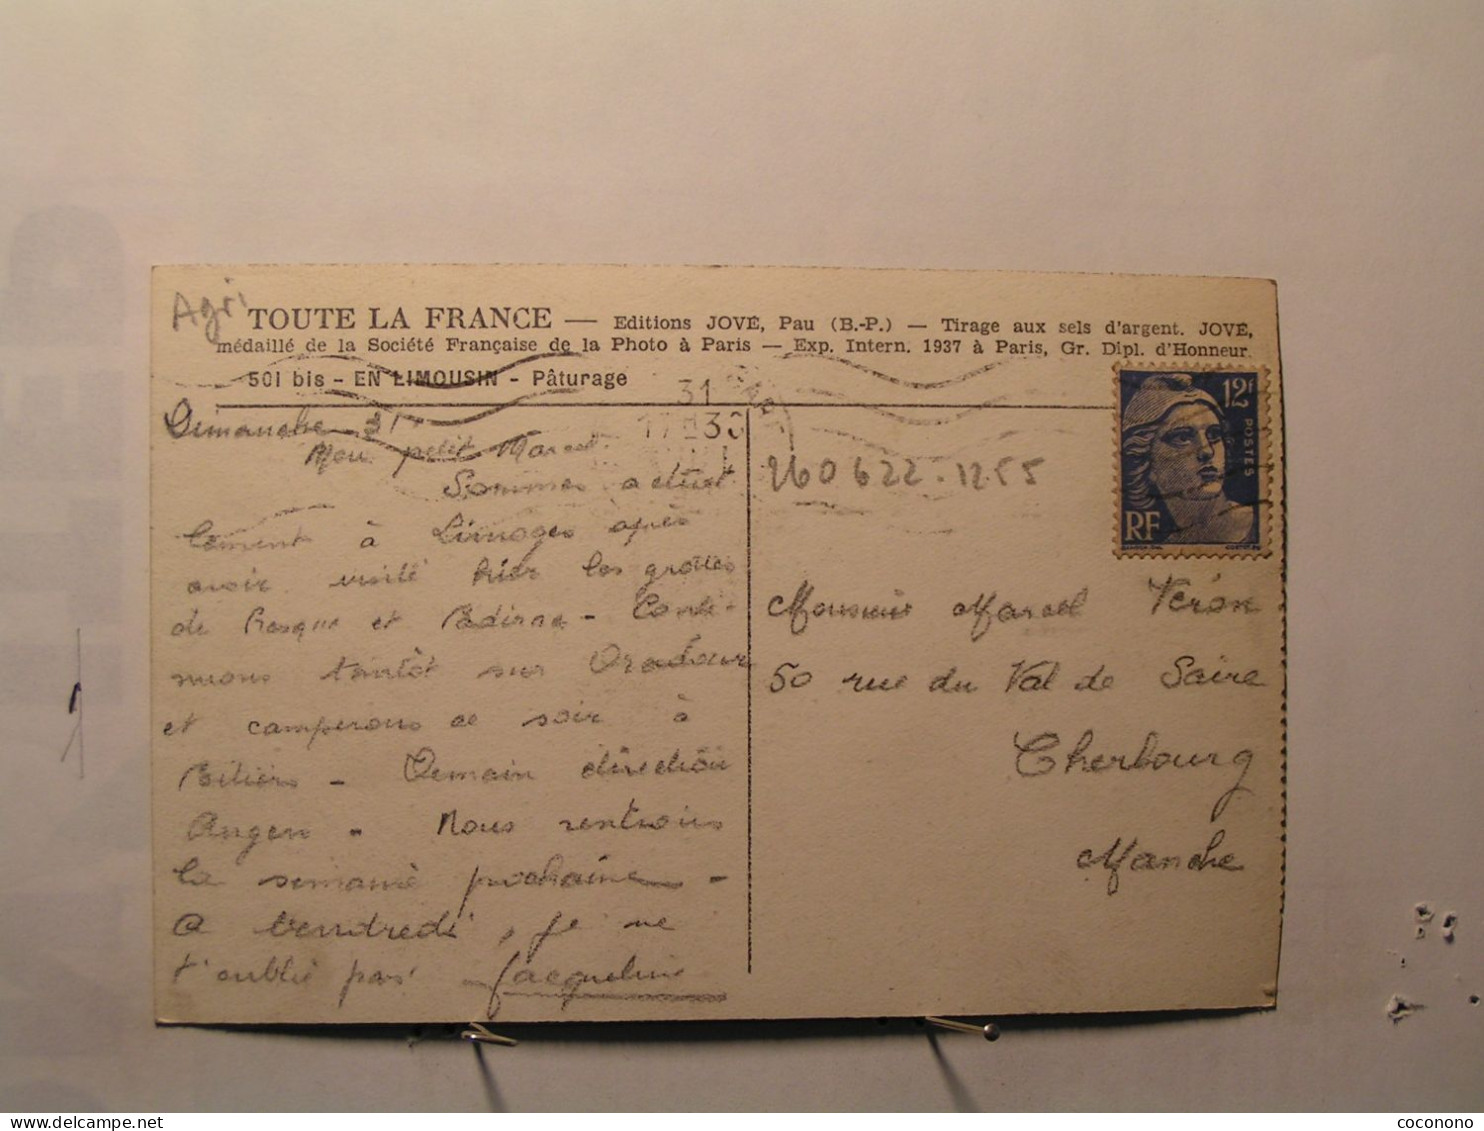 Agri
TOUTE LA FRANCE — Editions JOVÉ, Pau (B.-P.) — Tirage aux sels d'argent. JOVÉ,
médaillé de la Société Française de la Photo à Paris — Exp. Intern. 1937 à Paris, Gr. Dipl. d'Honneur.
501 bis - EN LIMOUSIN - Pâturage
31
17 30
12F
POSTES
RF
Dimanche 31
Mon petit Marcel.
Sommes actuel
lement à Limoges après
avoir visité hier les grottes
de et Padirac - Conti-
nuons tantôt sur Oradour
et camperons ce soir à
- Demain direction
Angers - Nous rentrons
la semaine prochaine -
A Vendredi, je ne
t'oublie pas Jacqueline
260622-1255
Monsieur Marcel Véron
50 rue du Val de Saire
Cherbourg
Manche
coconono